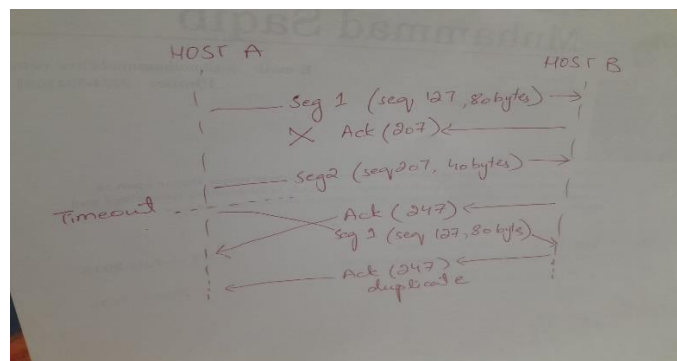 HOST A
HOST B
Seg 1 (seq 127, 80bytes)
X Ack (207)
Seg2 (seq207, 40bytes)
Timeout
Ack (247)
seg 1 (seq 127, 80bytes)
Ack (247)
duplicate
Muhammad Saqib